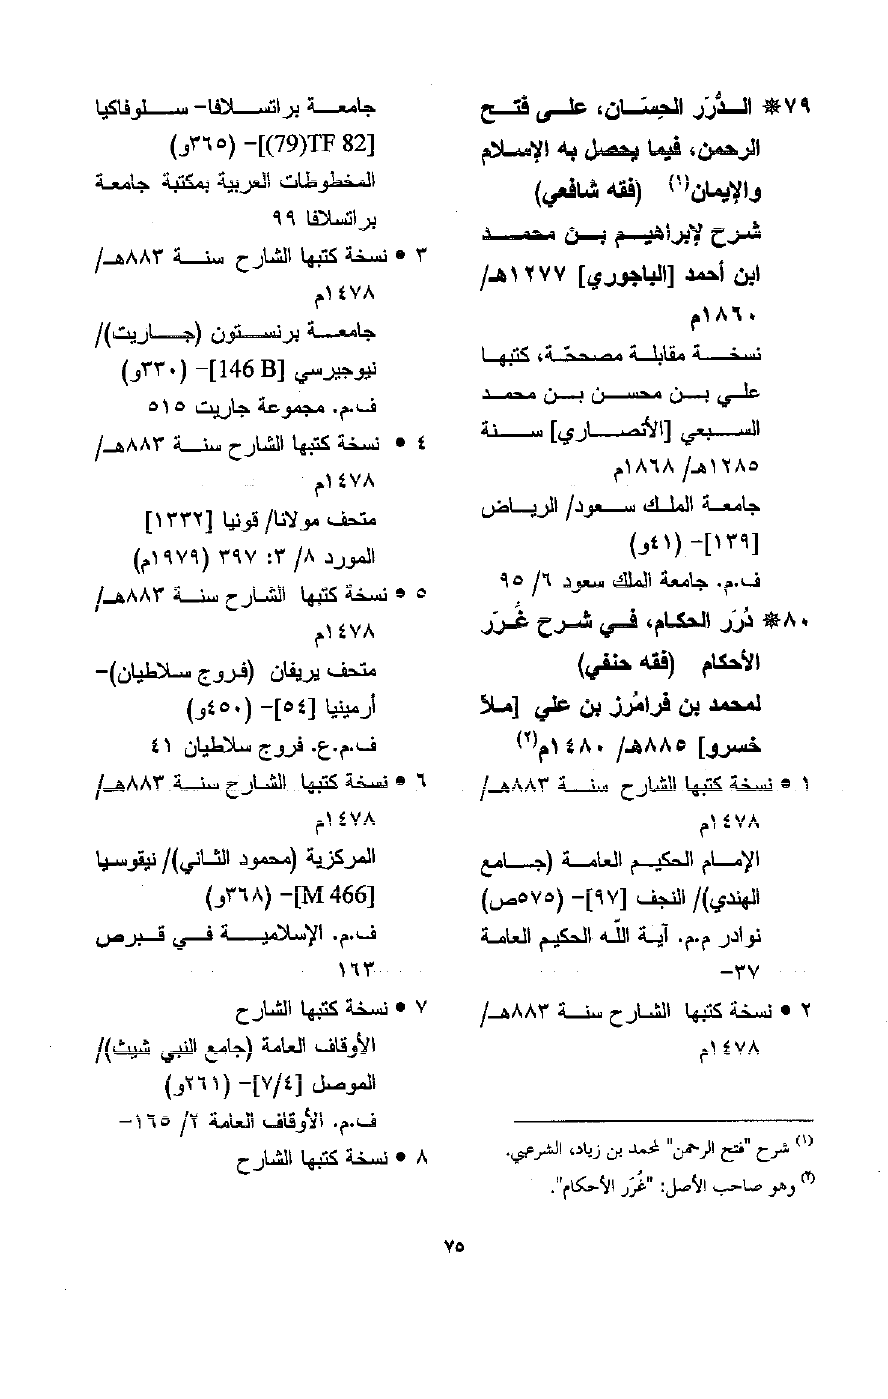 ٧٩* الدُّرَر الحِسَان، على فتح
الرحمن، فيما يحصل به الإسلام
والإيمان(١) (فقه شافعي)
شرح لإبراهيم بن محمد
ابن أحمد [الباجوري] ١٢٧٧هـ/
١٨٦٠م
نسخة مقابلة مصححّة، كتبها
علي بن محسن بن محمد
السبعي [الأنصاري] سنة
١٢٨٥هـ/ ١٨٦٨م
جامعة الملك سعود/ الرياض
[١٣٩]- (٤١و)
ف.م. جامعة الملك سعود ٦/ ٩٥
٨٠* دُرَر الحكام، في شرح غُرَر
الأحكام (فقه حنفي)
لمحمد بن فرامُرز بن علي [ملاّ
خسرو] ٨٨٥هـ/ ١٤٨٠م(٢)
١ • نسخة كتبها الشارح سنة ٨٨٣هـ/
١٤٧٨م
الإمام الحكيم العامة (جامع
الهندي)/ النجف [٩٧]- (٥٧٥ص)
نوادر م.م. آية الله الحكيم العامة
٣٧-
٢ • نسخة كتبها الشارح سنة ٨٨٣هـ/
١٤٧٨م
(١) شرح "فتح الرحمن" لمحمد بن زياد، الشرعبي.
(٢) وهو صاحب الأصل: "غُرَر الأحكام".
جامعة براتسلافا- سلوفاكيا
[TF 82(79)]- (٣٦٥و)
المخطوطات العربية بمكتبة جامعة
براتسلافا ٩٩
٣ • نسخة كتبها الشارح سنة ٨٨٣هـ/
١٤٧٨م
جامعة برنستون (جاريت)/
نيوجيرسي [146 B]- (٣٣٠و)
ف.م. مجموعة جاريت ٥١٥
٤ • نسخة كتبها الشارح سنة ٨٨٣هـ/
١٤٧٨م
متحف مولانا/ قونيا [١٣٣٢]
المورد ٨/ ٣: ٣٩٧ (١٩٧٩م)
٥ • نسخة كتبها الشارح سنة ٨٨٣هـ/
١٤٧٨م
متحف يريفان (فروج سلاطيان)-
أرمينيا [٥٤]- (٤٥٠و)
ف.م.ع. فروج سلاطيان ٤١
٦ • نسخة كتبها الشارح سنة ٨٨٣هـ/
١٤٧٨م
المركزية (محمود الثاني)/ نيقوسيا
[M 466]- (٣٦٨و)
ف.م. الإسلامية في قبرص
١٦٣
٧ • نسخة كتبها الشارح
الأوقاف العامة (جامع النبي شيث)/
الموصل [٧/٤]- (٢٦١و)
ف.م. الأوقاف العامة ٢/ ١٦٥-
٨ • نسخة كتبها الشارح
٧٥